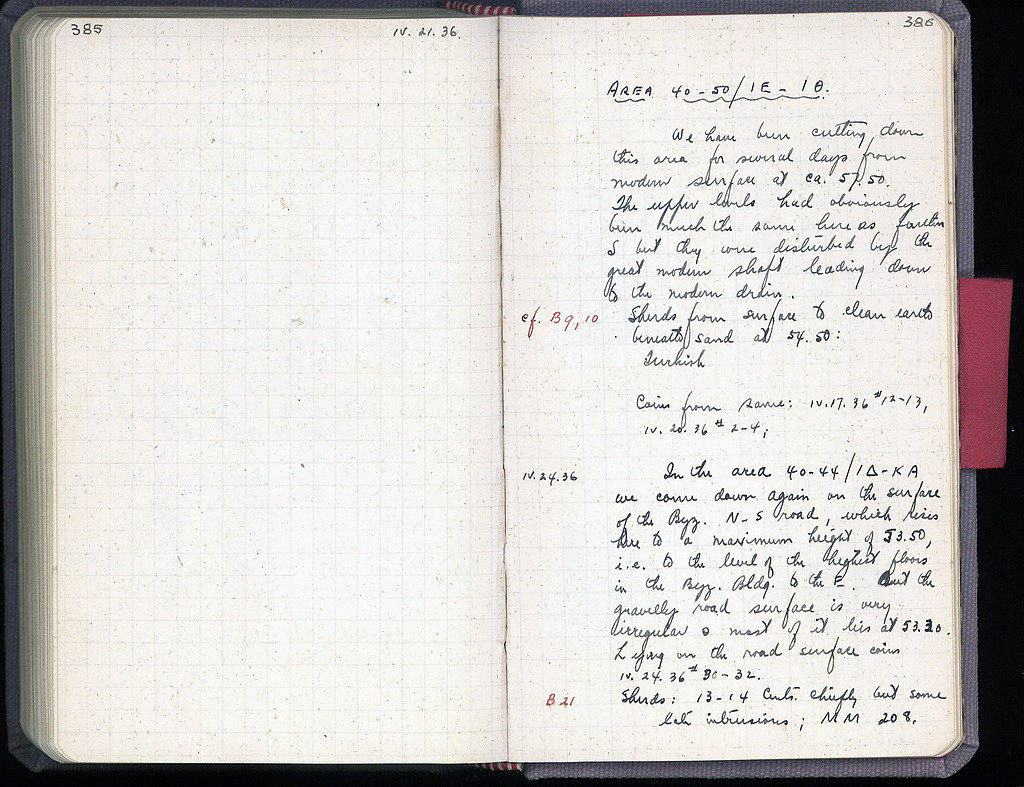 385
IV. 21. 36.
386
AREA 40-50/ΙΕ-ΙΘ.
We have been cutting down
this area for several days from
modern surface at ca. 57.50.
The upper levels had obviously
been much the same here as farther
S but they were disturbed by the
great modern shaft leading down
to the modern drain.
cf. B9, 10
Sherds from surface to clean earth
beneath sand at 54.50:
Turkish
Coins from same: IV.17.36 #12-13,
IV. 20. 36 # 2-4;
IV. 24. 36
In the area 40-44/ΙΔ-ΚΑ
we come down again on the surface
of the Byz. N-S road, which rises
here to a maximum height of 53.50,
i.e. to the level of the highest floors
in the Byz. Bldg. to the E. But the
gravelly road surface is very
irregular & most of it lies at 53.20.
Lying on the road surface coins
IV. 24. 36 # 30-32.
B 21
Sherds: 13-14 Cents. chiefly but some
late intrusions; MM 208.